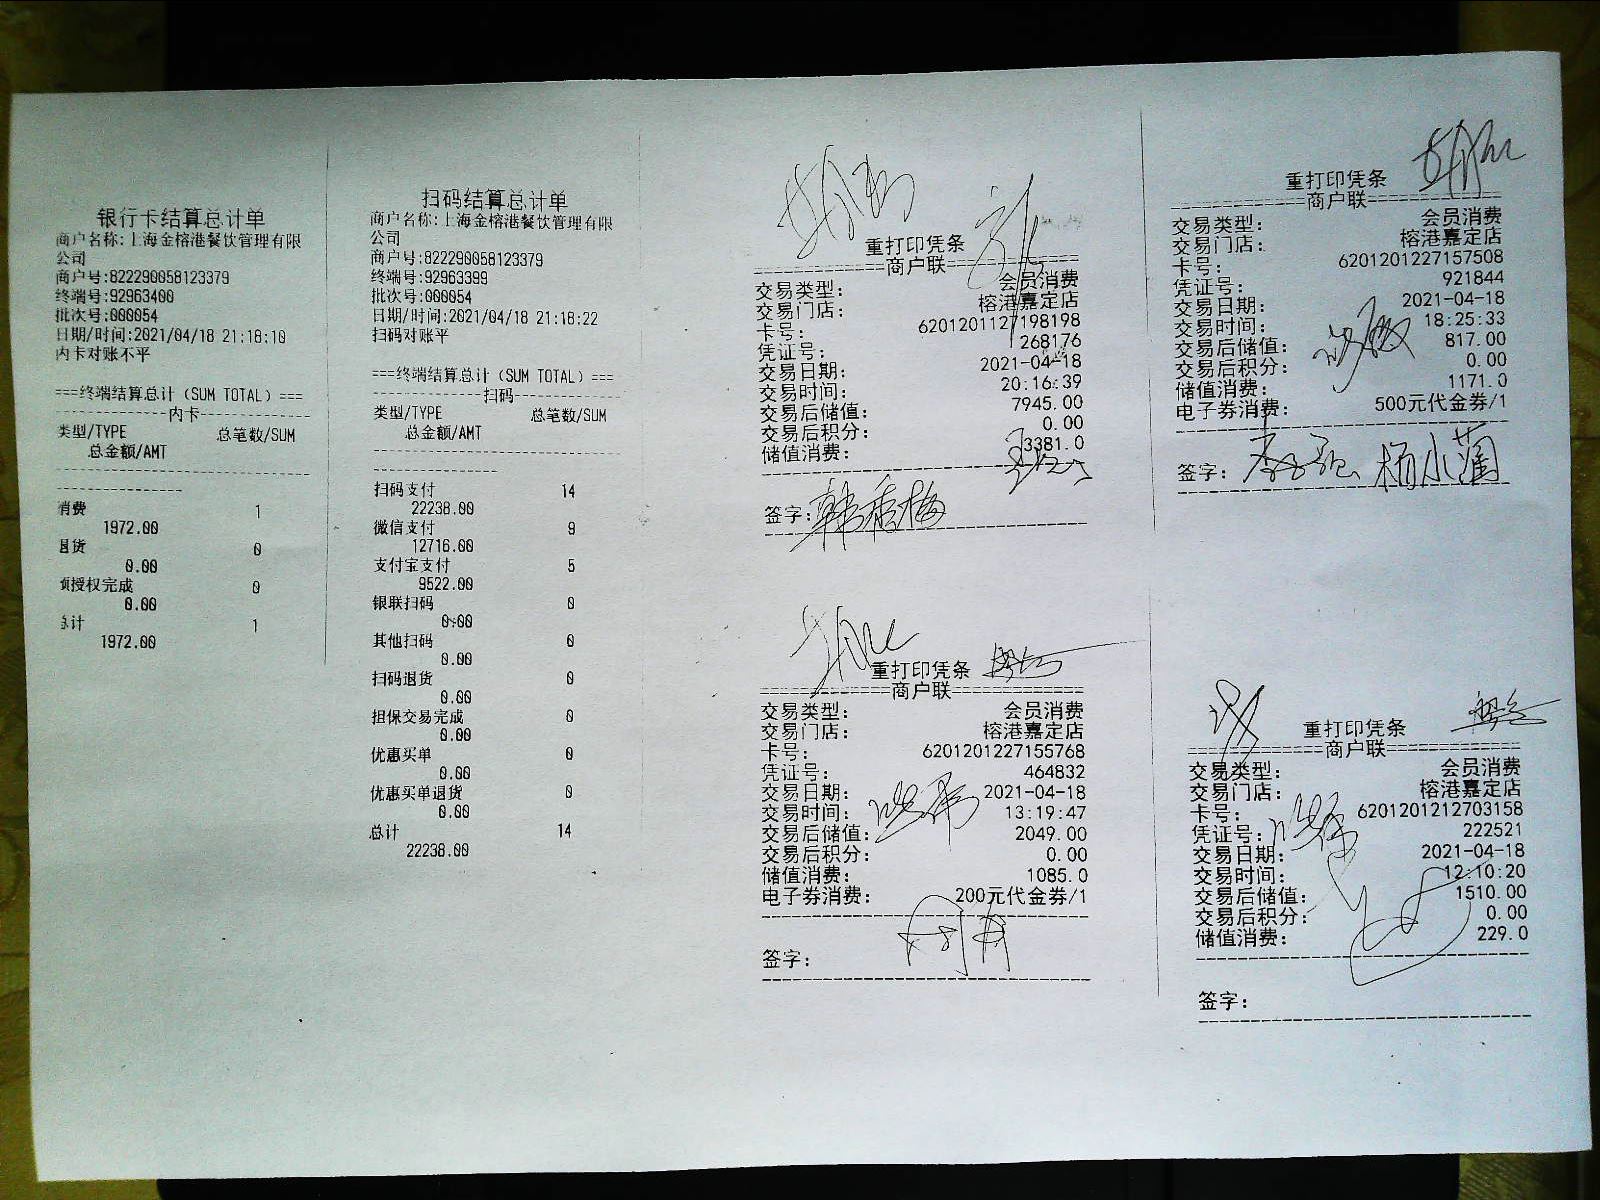 银行卡结算总计单
商户名称:上海金榕港餐饮管理有限
公司
商户号:822290058123379
终端号:92963400
批次号:000054
日期/时间:2021/04/18 21:18:10
内卡对账不平
===终端结算总计(SUM TOTAL)===
----------------内卡----------------
类型/TYPE 总笔数/SUM
总金额/AMT
消费 1
1972.00
退货 0
0.00
预授权完成 0
0.00
总计 1
1972.00
扫码结算总计单
商户名称:上海金榕港餐饮管理有限
公司
商户号:822290058123379
终端号:92963399
批次号:000054
日期/时间:2021/04/18 21:18:22
扫码对账平
===终端结算总计(SUM TOTAL)===
----------------扫码----------------
类型/TYPE 总笔数/SUM
总金额/AMT
扫码支付 14
22238.00
微信支付 9
12716.00
支付宝支付 5
9522.00
银联扫码 0
0.00
其他扫码 0
0.00
扫码退货 0
0.00
担保交易完成 0
0.00
优惠买单 0
0.00
优惠买单退货 0
0.00
总计 14
22238.00
重打印凭条
============商户联============
交易类型: 会员消费
交易门店: 榕港嘉定店
卡号: 6201201127198198
凭证号: 268176
交易日期: 2021-04-18
交易时间: 20:16:39
交易后储值: 7945.00
交易后积分: 0.00
储值消费: 3381.0
签字:韩秀梅
重打印凭条
============商户联============
交易类型: 会员消费
交易门店: 榕港嘉定店
卡号: 6201201227155768
凭证号: 464832
交易日期: 2021-04-18
交易时间: 13:19:47
交易后储值: 2049.00
交易后积分: 0.00
储值消费: 1085.0
电子券消费: 200元代金券/1
签字:
重打印凭条
============商户联============
交易类型: 会员消费
交易门店: 榕港嘉定店
卡号: 6201201227157508
凭证号: 921844
交易日期: 2021-04-18
交易时间: 18:25:33
交易后储值: 817.00
交易后积分: 0.00
储值消费: 1171.0
电子券消费: 500元代金券/1
签字: 杨小菊
重打印凭条
============商户联============
交易类型: 会员消费
交易门店: 榕港嘉定店
卡号: 6201201212703158
凭证号: 222521
交易日期: 2021-04-18
交易时间: 12:10:20
交易后储值: 1510.00
交易后积分: 0.00
储值消费: 229.0
签字: